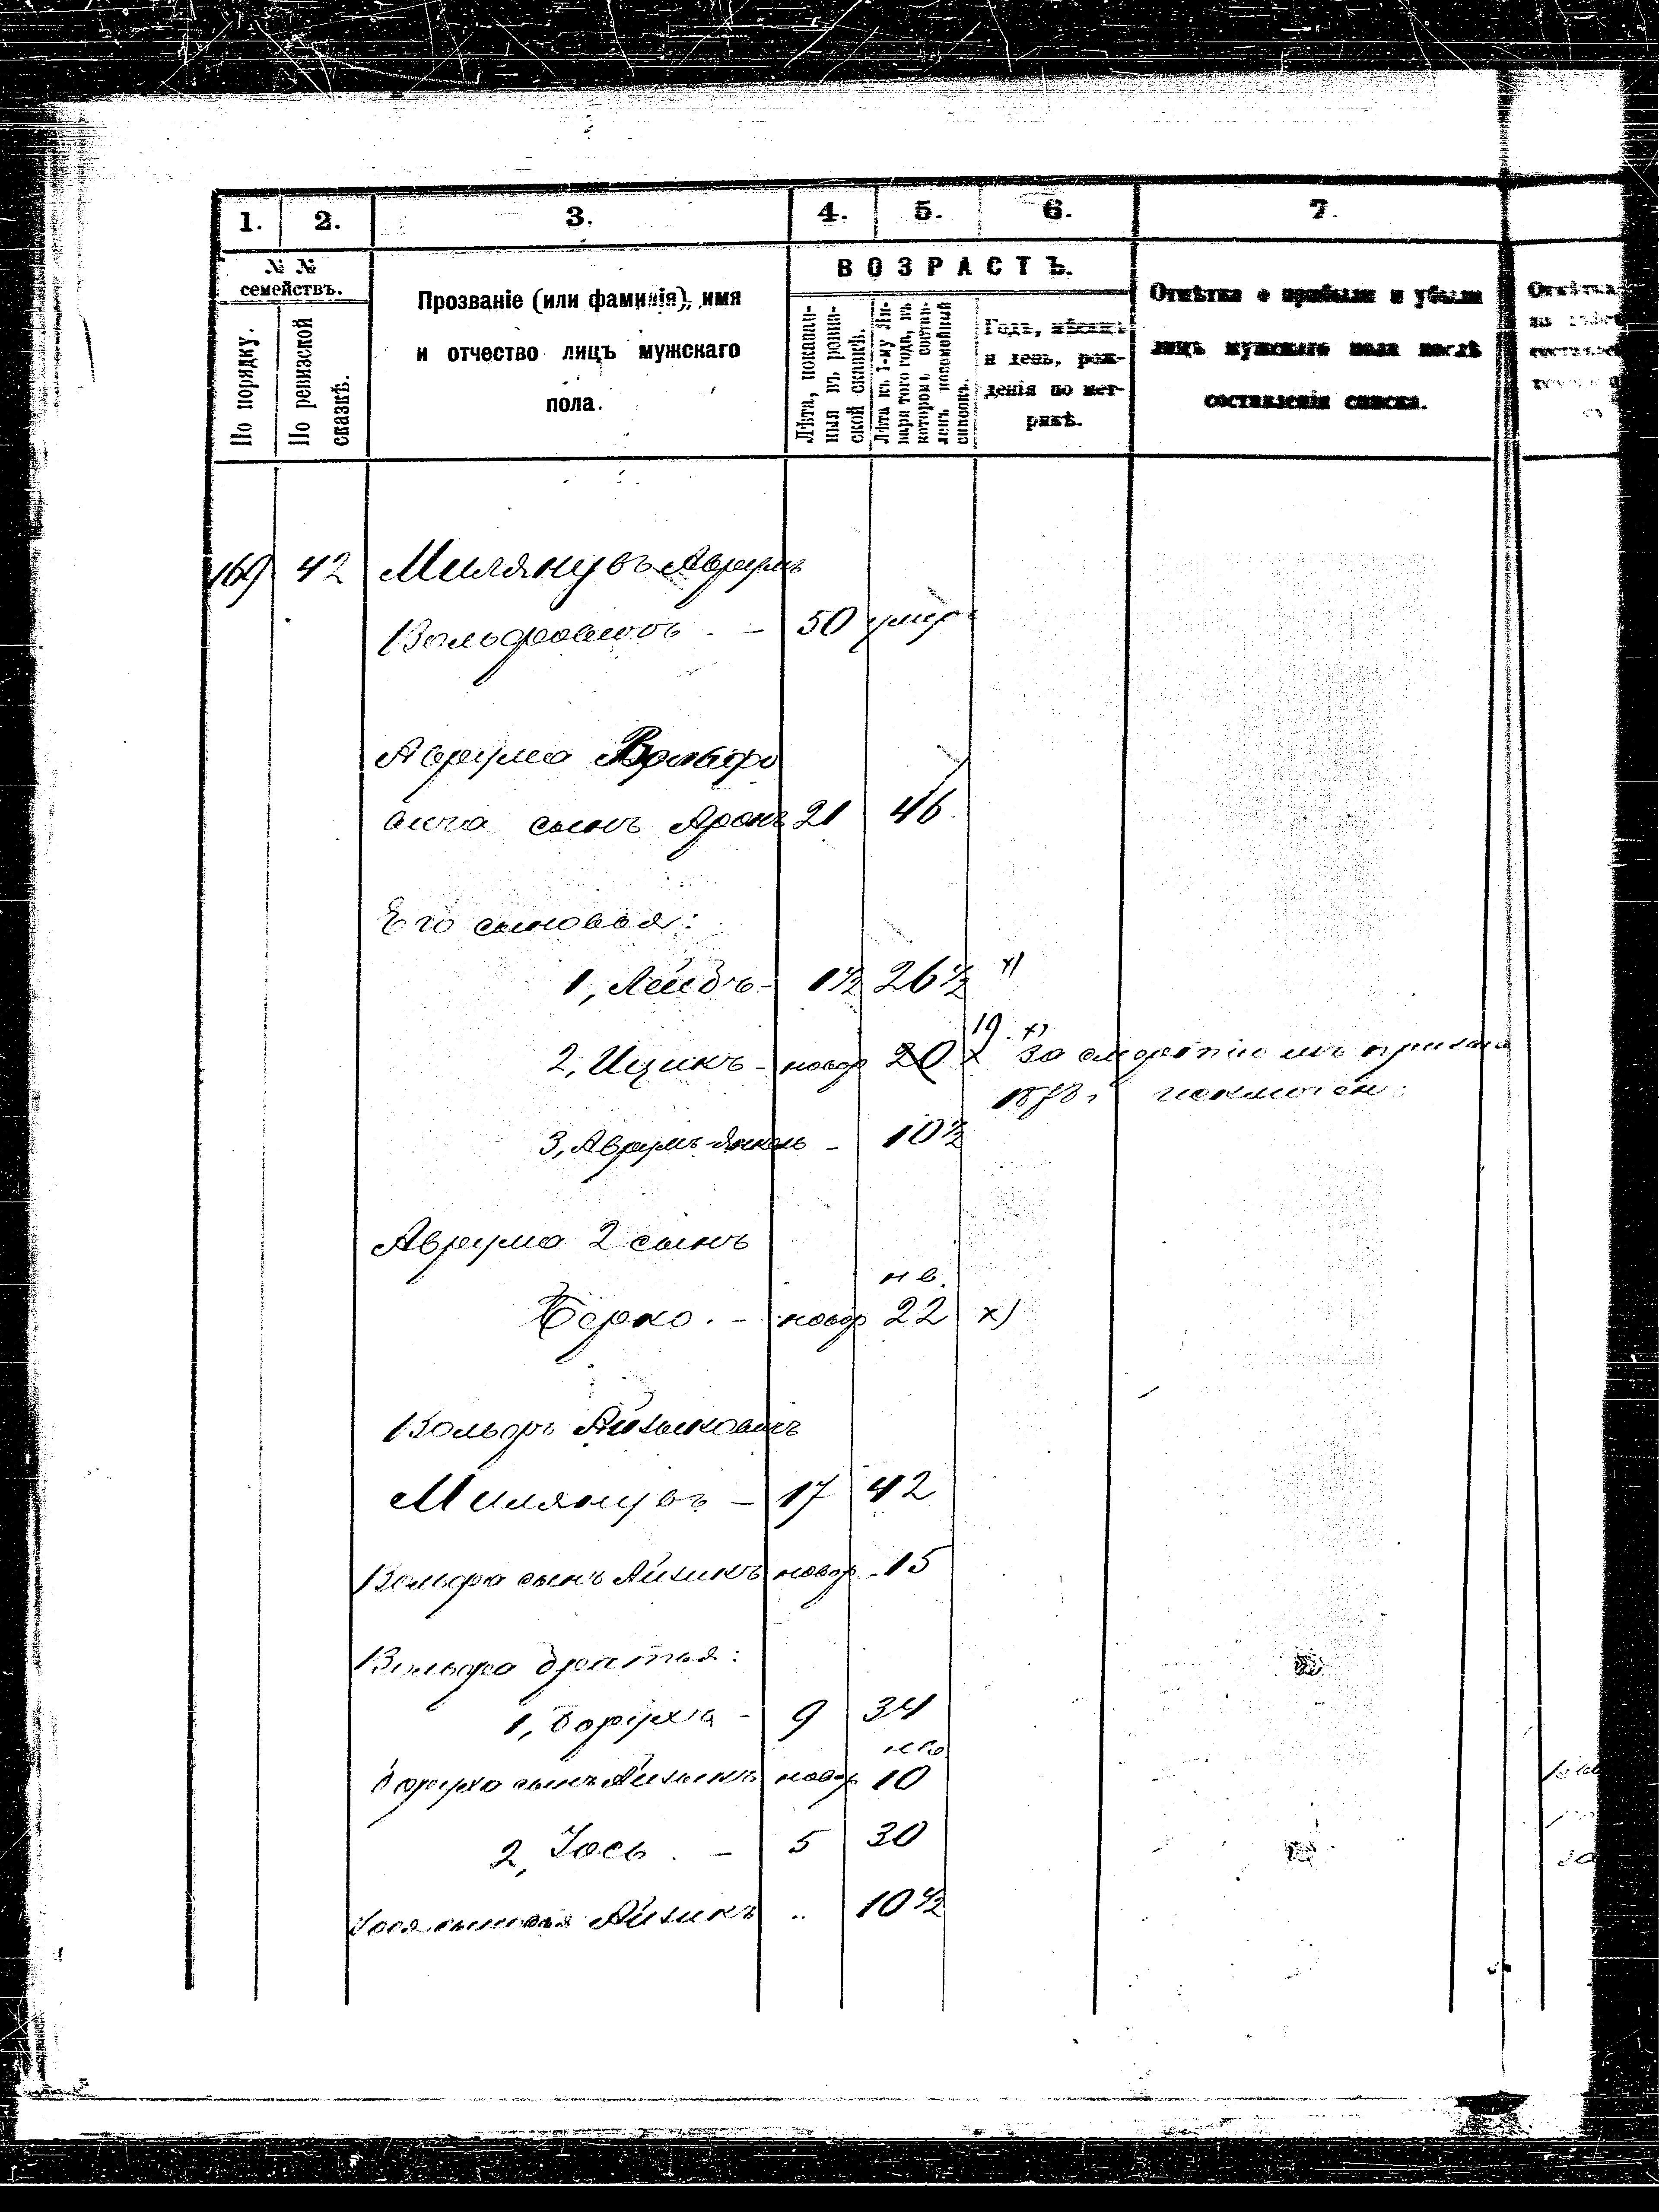 1. 2. 3. 4. 5. 6. 7.
№ № семействъ.
По порядку.
По ревизской сказкѣ.
Прозваніе (или фамилія), имя
и отчество лицъ мужскаго
пола.
ВОЗРАСТЪ.
Лѣта, показан-
ныя въ ревиз-
ской сказкѣ.
Лѣта къ 1-му Ян-
варя того года, въ
которомъ состав-
ленъ посемейный
списокъ.
Годъ, мѣсяцъ
и день, рож-
денія по мет-
рикѣ.
Отмѣтка о прибыли и убыли
лицъ мужскаго пола послѣ
составленія списка.
169 42 Милянувъ Аврумъ
Вольфовичъ - 50 умеръ
Аврума Вольфо
вича сынъ Аронъ 21 46.
Его сыновья:
1, Лейбъ - 1½ 26½ х)
19. х)
2, Ицикъ - новор 20 х За
1878 г исключенъ
3, Аврумъ-Янкель - 10½
Аврума 2 сынъ
нв.
Берко. - новор 22 х)
Вольфъ Айзыковичъ
Милянувъ - 17 42
Вольфа сынъ Айзикъ новор. - 15
Вольфа братья:
1, Борухъ - 9 34
Боруха сынъ Айзыкъ новор 10
2, Іось. - 5 30
Іося сыновья Айзикъ " 10½